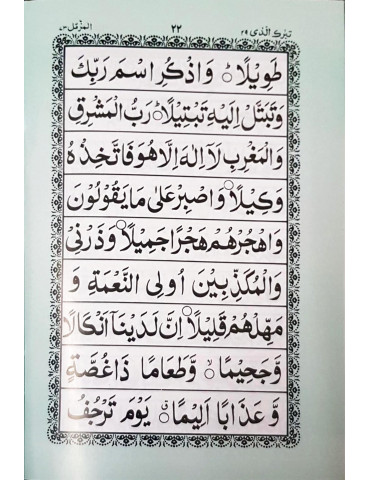 تبٰرک الذی ۲۹ ۲۲ المزمل ۷۳
طَوِيْلًا ؕ وَاذْكُرِ اسْمَ رَبِّكَ
وَتَبَتَّلْ اِلَيْهِ تَبْتِيْلًا ؕ رَبُّ الْمَشْرِقِ
وَالْمَغْرِبِ لَاۤ اِلٰهَ اِلَّا هُوَ فَاتَّخِذْهُ
وَكِيْلًا ○ وَاصْبِرْ عَلٰى مَا يَقُوْلُوْنَ
وَاهْجُرْهُمْ هَجْرًا جَمِيْلًا ○ وَذَرْنِيْ
وَالْمُكَذِّبِيْنَ اُولِي النَّعْمَةِ وَ
مَهِّلْهُمْ قَلِيْلًا ○ اِنَّ لَدَيْنَاۤ اَنْكَالًا
وَّجَحِيْمًا ۙ○ وَّطَعَامًا ذَا غُصَّةٍ
وَّعَذَابًا اَلِيْمًا ۗ○ يَوْمَ تَرْجُفُ